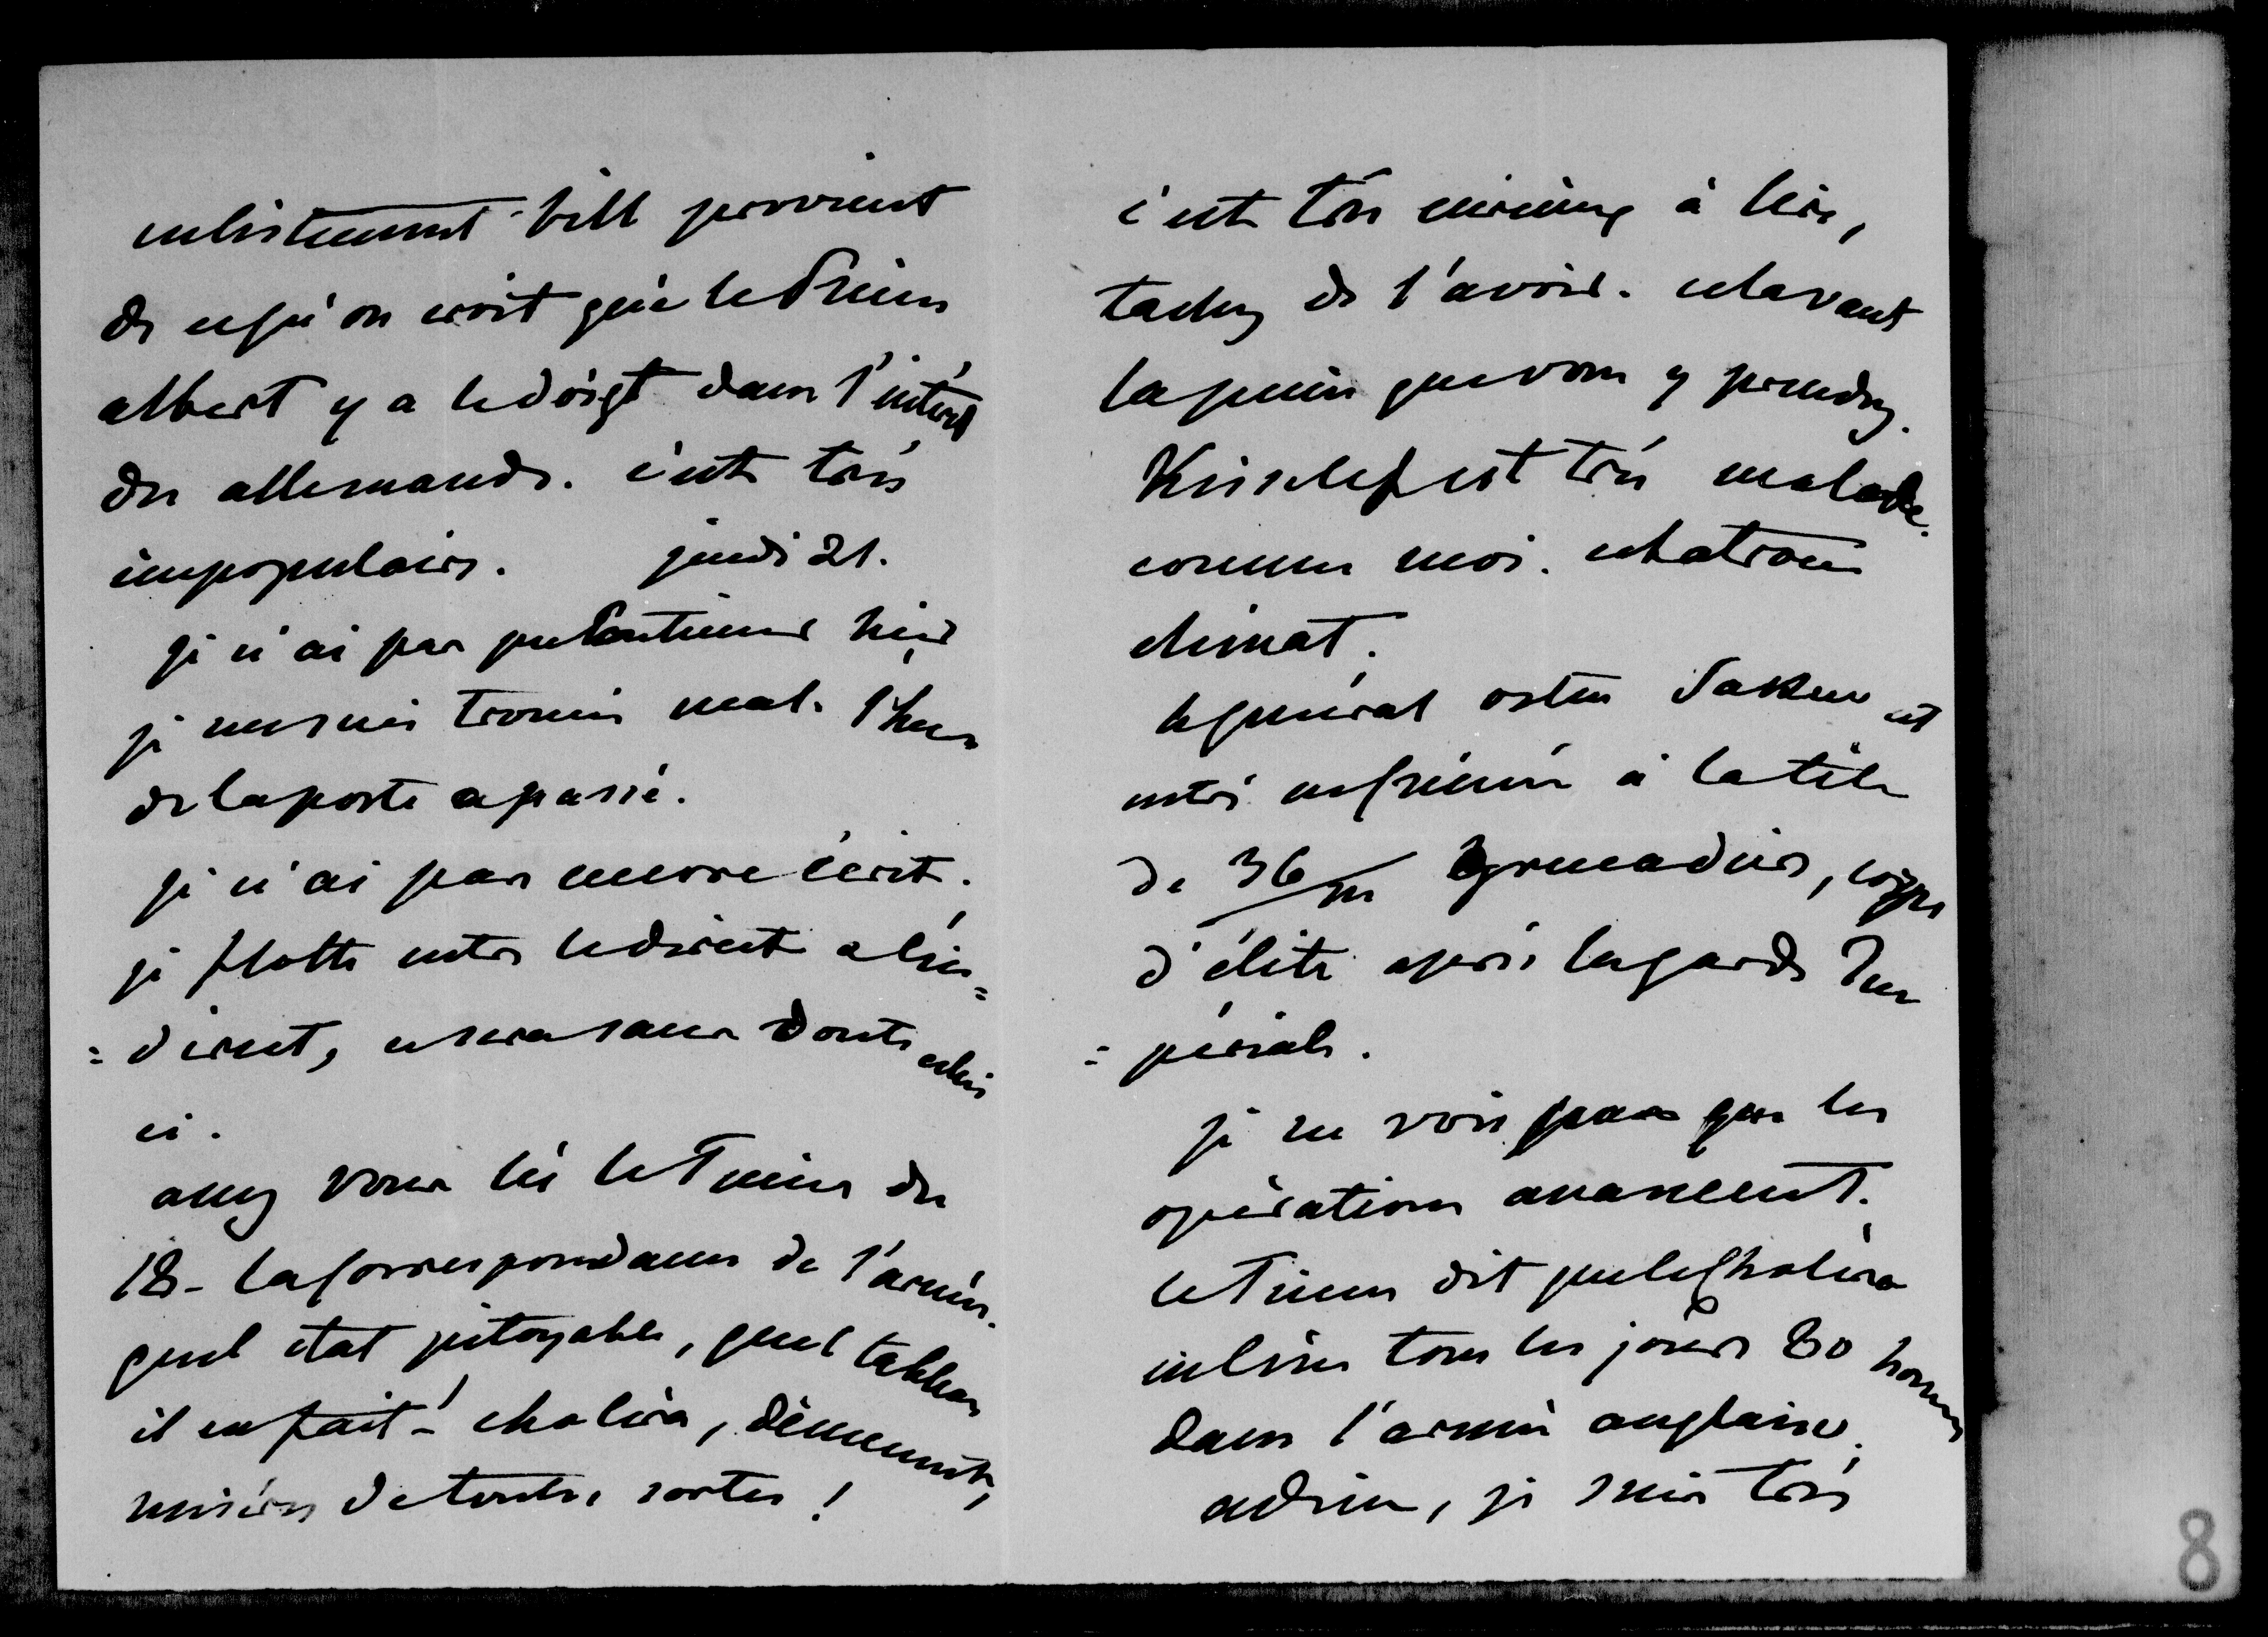 enlistment bill provient
de ce qu'on croit que le Prince
albert y a le doigt dans l'intérêt
des allemands. c'est très
impopulaire. jeudi 21.
je n'ai pas pu continuer hier
je me suis trouvée mal. l'heure
de la poste a passé.
je n'ai pas encore écrit.
je flotte entre le direct & l'in=
=direct, ce sera sans doute celui
ci.
avez vous lu le Times du
18 - la Correspondance de l'armée.
quel etat pitoyable, quel tableau
il en fait! cholera, dissenterie,
misères de toutes sortes!
c'est très curieux à lire,
tachez de l'avoir. cela vaut
la peine que vous y prendrez.
Kisselef est très malade.
comme moi. c'est a trouver
climat.
le général osten Saken est
entré en Crimée à la tête
de 36/m grenadiers, corps
d'élite après la garde Im
=périale.
je ne vois pas que les
opérations avancent.
le Times dit que le Choléra
enlève tous les jours 80 hommes
dans l'armée anglaise.
adieu, je suis très
8